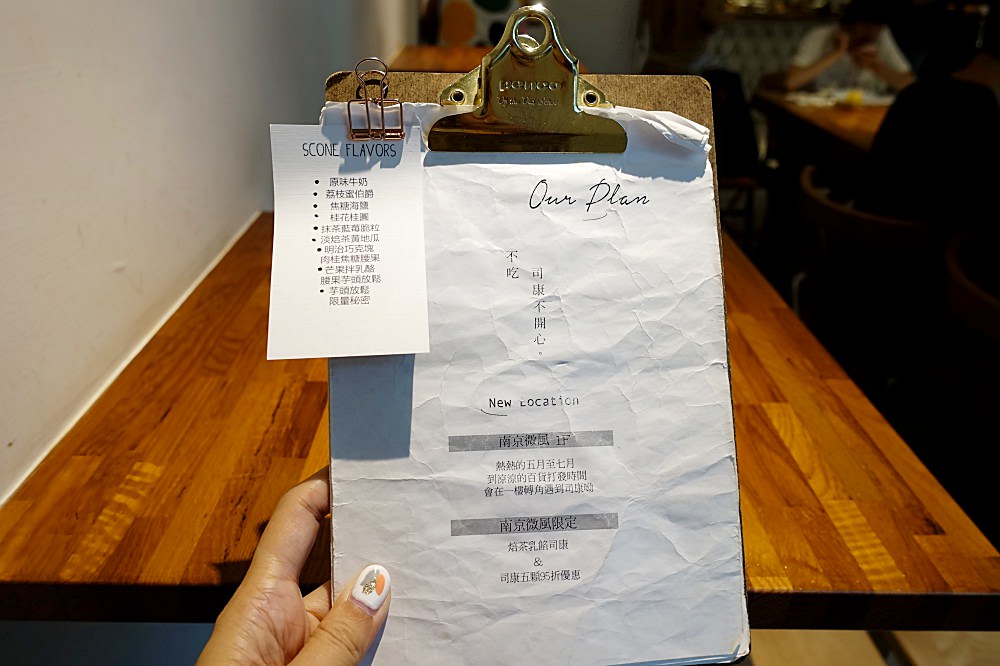 penco
SCONE FLAVORS
• 原味牛奶
• 荔枝蜜伯爵
• 焦糖海鹽
• 桂花桂圓
• 抹茶藍莓脆粒
• 淡焙茶黃地瓜
• 明治巧克塊
肉桂焦糖腰果
• 芒果拌乳酪
腰果芋頭放鬆
• 芋頭放鬆
限量秘密
Our Plan
不吃
司康不開心。
New Location
南京微風 1F
熱熱的五月至七月
到涼涼的百貨打發時間
會在一樓轉角遇到司康呦
南京微風限定
焙茶乳餡司康
&
司康五顆95折優惠